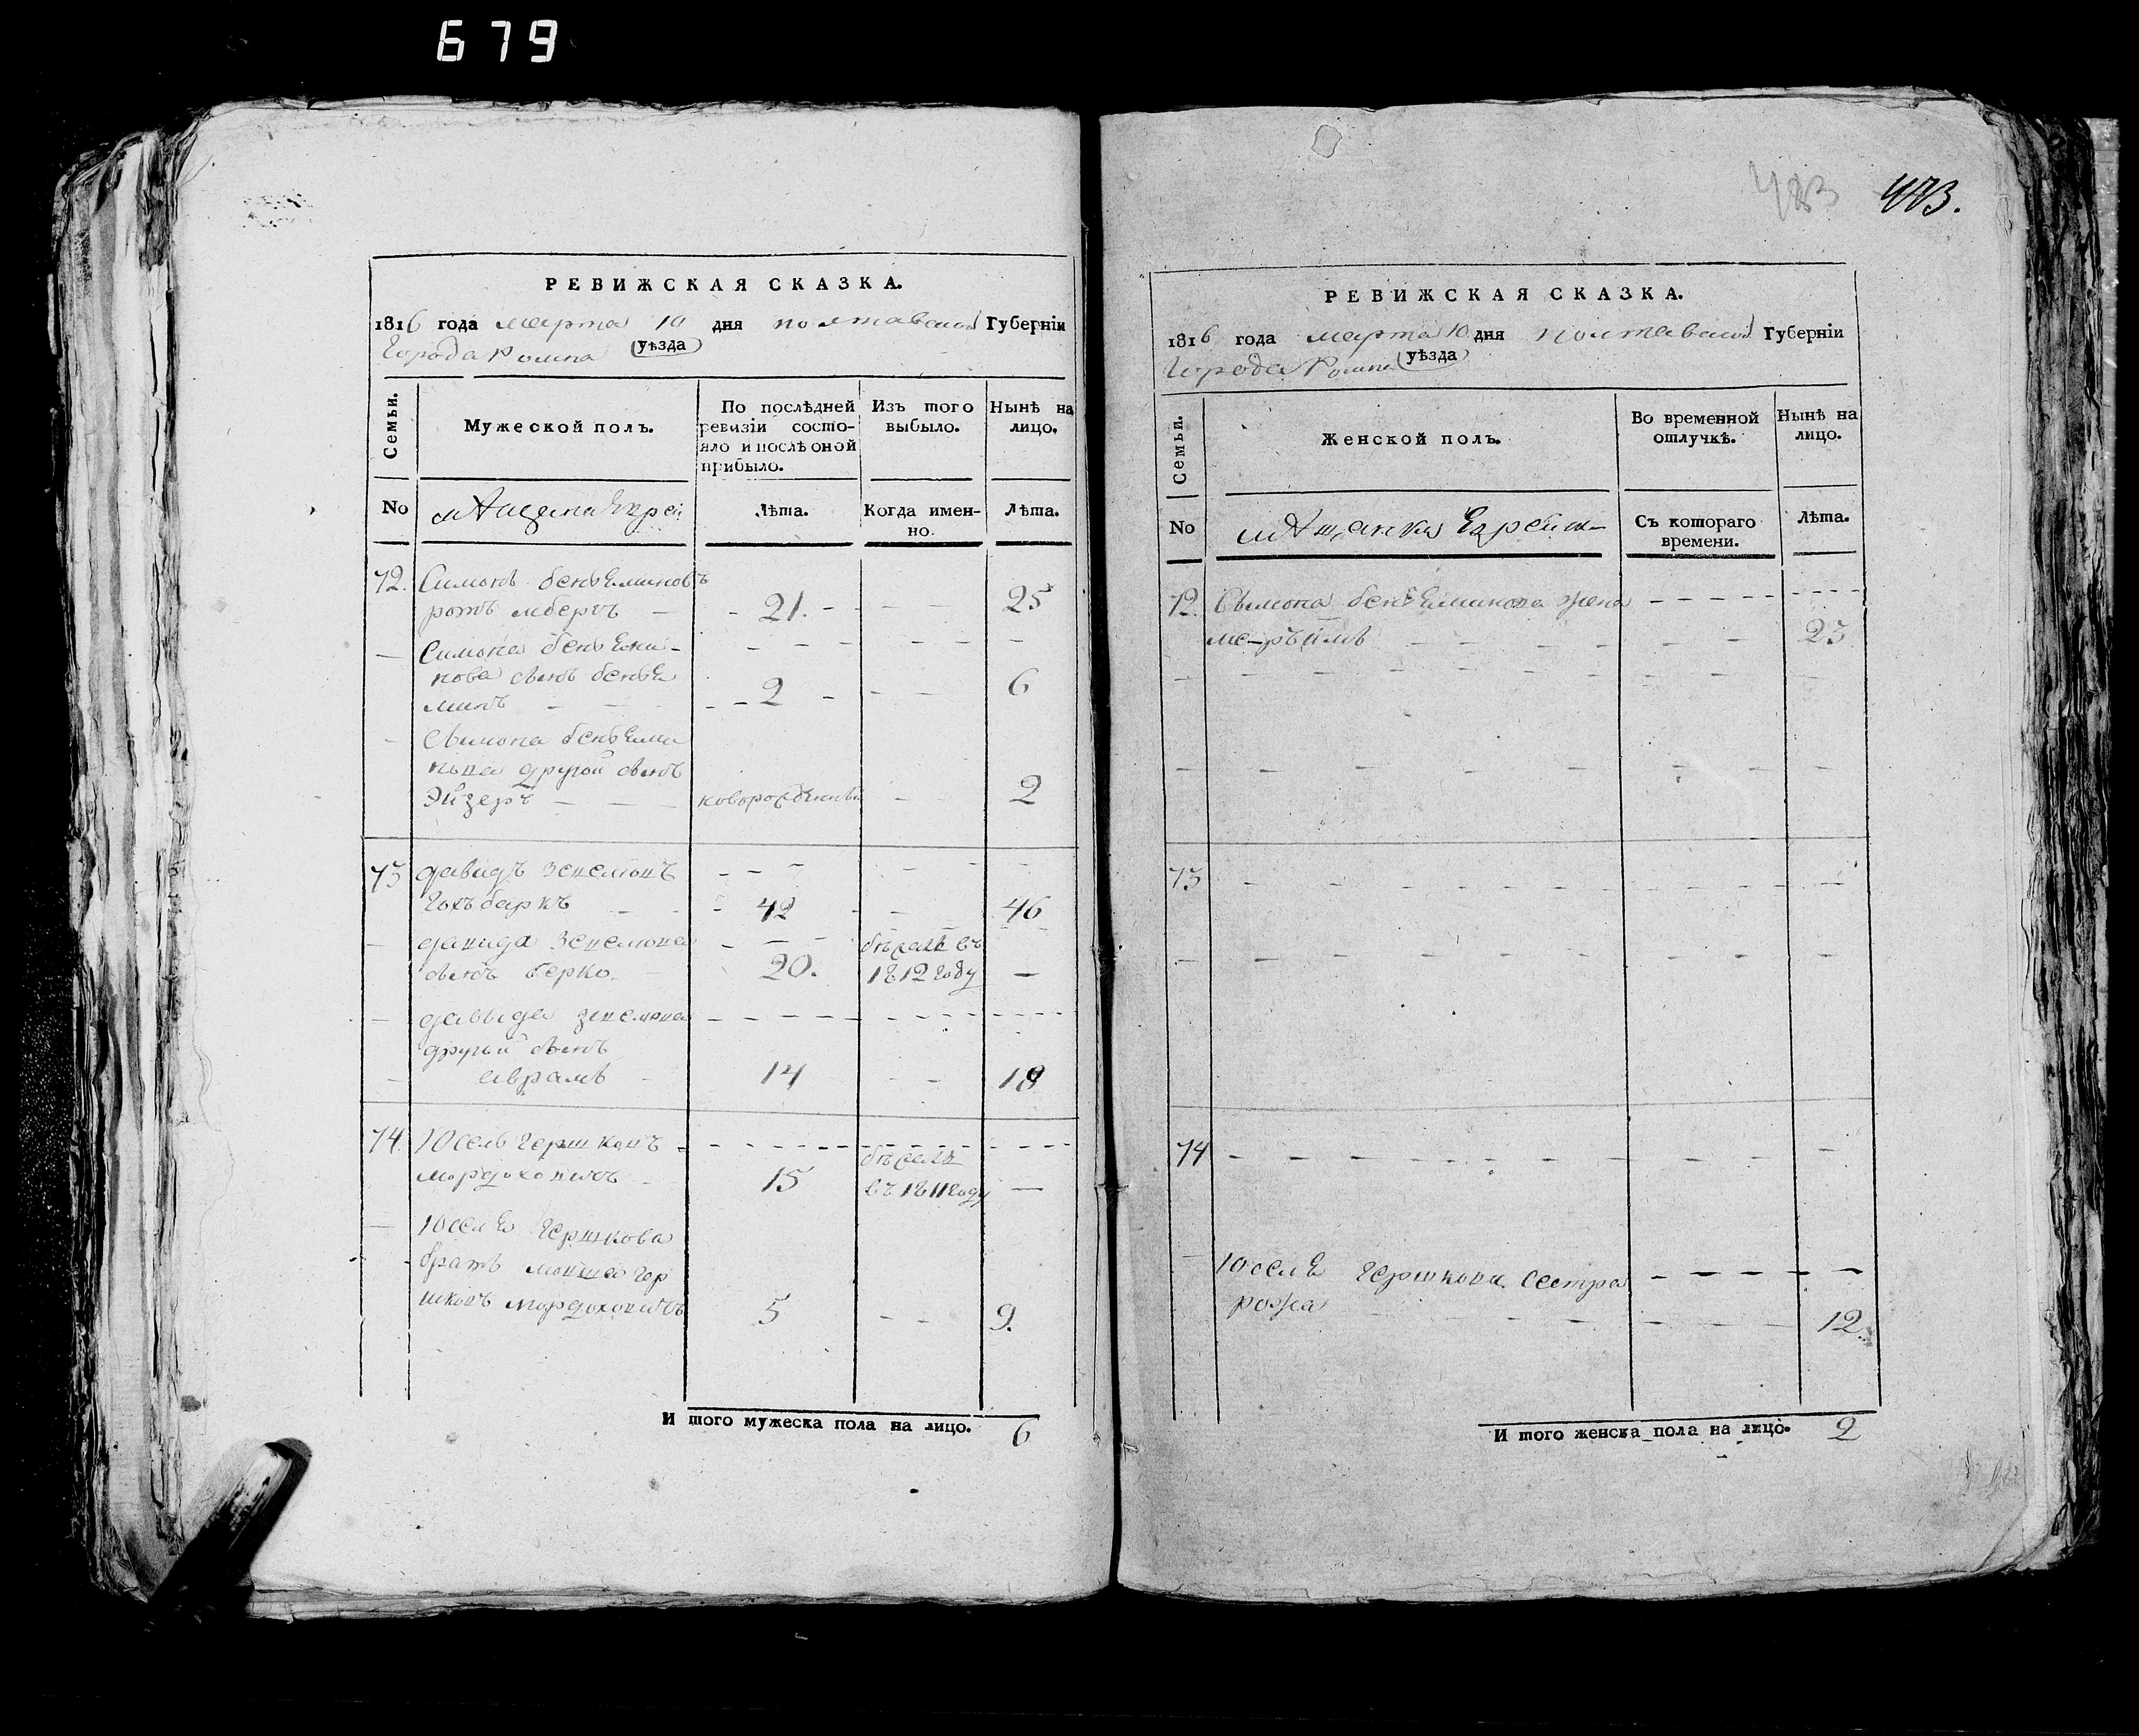 679
РЕВИЖСКАЯ СКАЗКА.
1816 года марта 10 дня полтавской Губернїи
Города Ромна уѣзда
Семьи.
Мужеской полъ.
По послѣдней ревизїи состояло и послѣ оной прибыло.
Изъ того выбыло.
Нынѣ на лицо.
No
мѣщане Евреи
Лѣта.
Когда именно.
Лѣта.
72. Симонъ беньеминовъ
ротъ мбергъ 21. 25
Симона беньеми-
нова сынъ бенье
минъ 2 6
Симона беньеми
нова другой сынъ
Эйзеръ новорожденный 2
73 давидъ
46
42
давида бѣжалъ въ
сынъ берко 20. 1812 году
давыда
другый сынъ
аврамъ 14 18
74. Юсель гершковъ бѣжалъ
мордоховичъ 15 въ 1811 году
Юселя гершкова
братъ мовша гер
шковъ мордоховичъ 5 9.
И того мужеска пола на лицо. 6
483 473.
РЕВИЖСКАЯ СКАЗКА.
1816 года марта 10 дня полтавской Губернїи
Города Ромна уѣзда
Семьи.
Женской полъ.
Во временной отлучкѣ.
Нынѣ на лицо.
No
мѣщанки Еврейк
Съ котораго времени.
Лѣта.
72. Симона беньеминова жена
23
73
74
Юселя гершкова сестра
рожа 12.
И того женска пола на лицо. 2